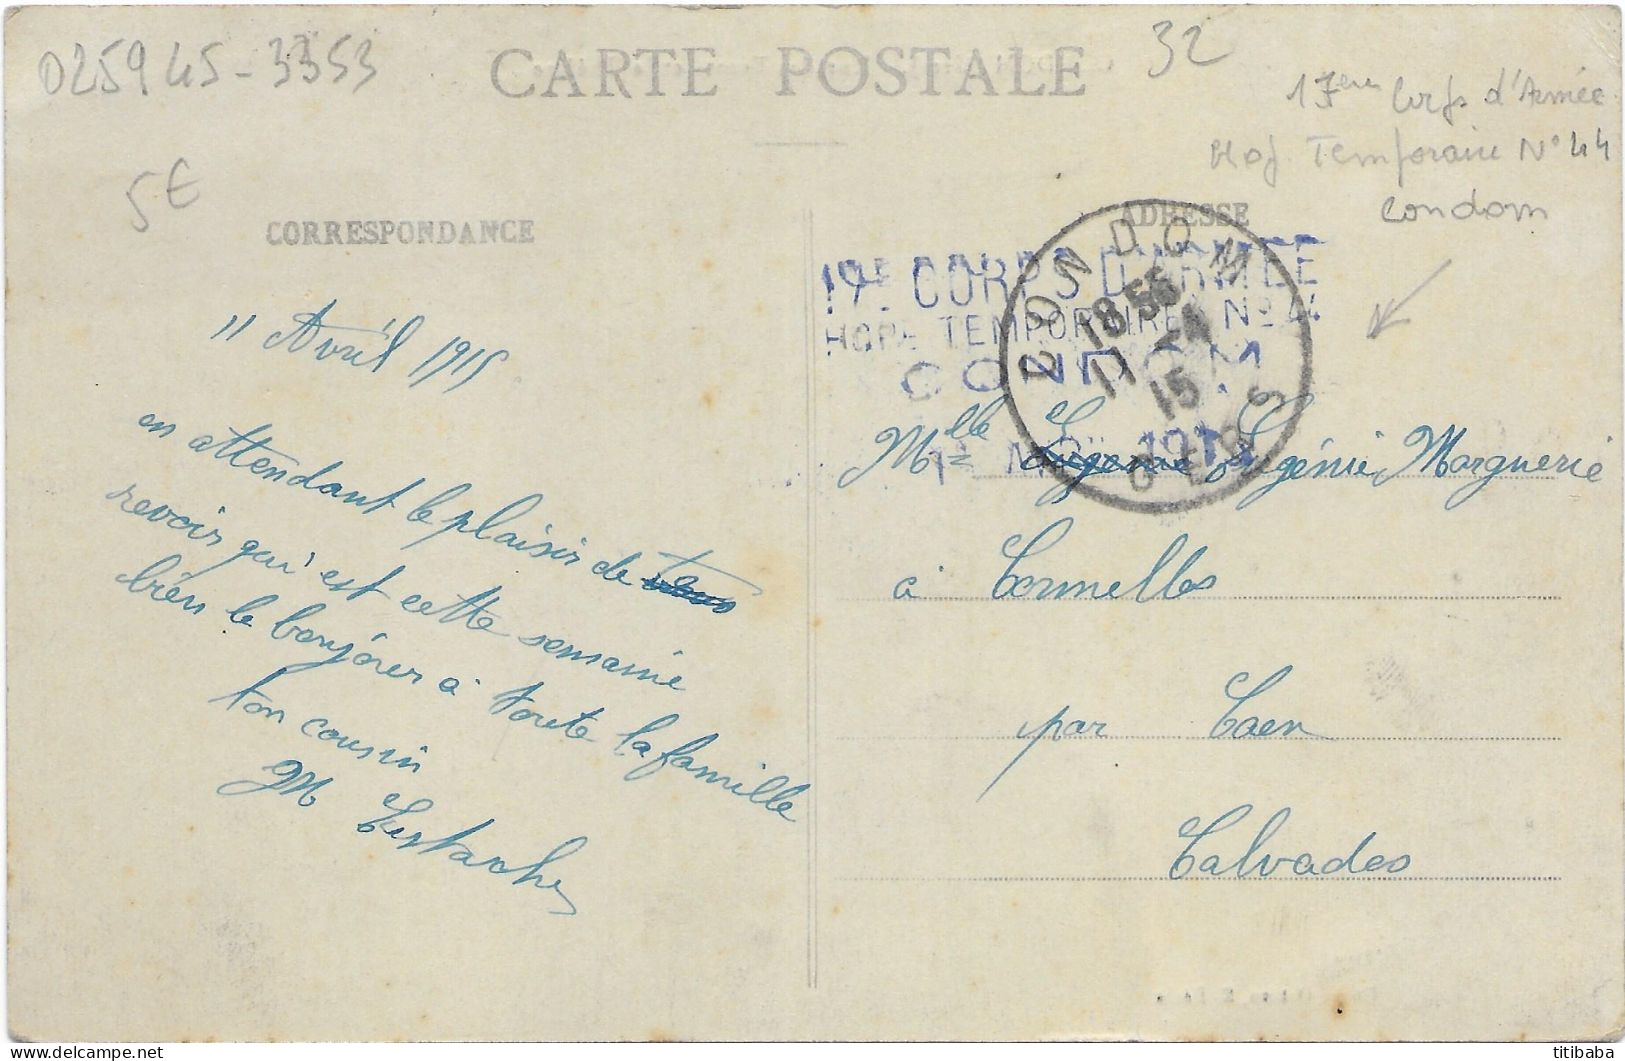 025945-3353
CARTE POSTALE
32
17em Corps d'Armée
Hop. Temporaire N° 44
Condom
5€
CORRESPONDANCE
ADRESSE
CORPS D'ARMEE
HOPL TEMPORAIRE Nº 44
CONDOM
CONDOM
18 55
11 -4
15
GERS
11 Avril 1915
en attendant le plaisir de
revoir qui est cette semaine
bien le bonjour à toute la famille
ton cousin
M
Mlle Eugénie Marguerie
à Cormelles
par Caen
Calvados
titibaba